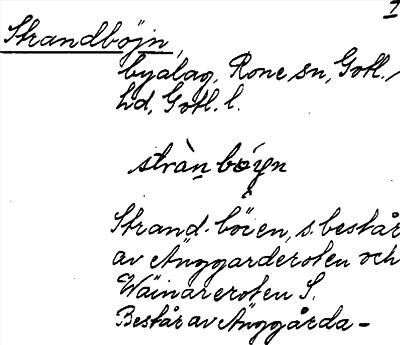 1
Strandböjn,
byalag, Rone sn, Gotl.,
hd, Gotl. l.
stràn bǫ́yn
Strand-böien, s. består
av Änggarderoten och
Wäinareroten S.
Består av Änggårda-